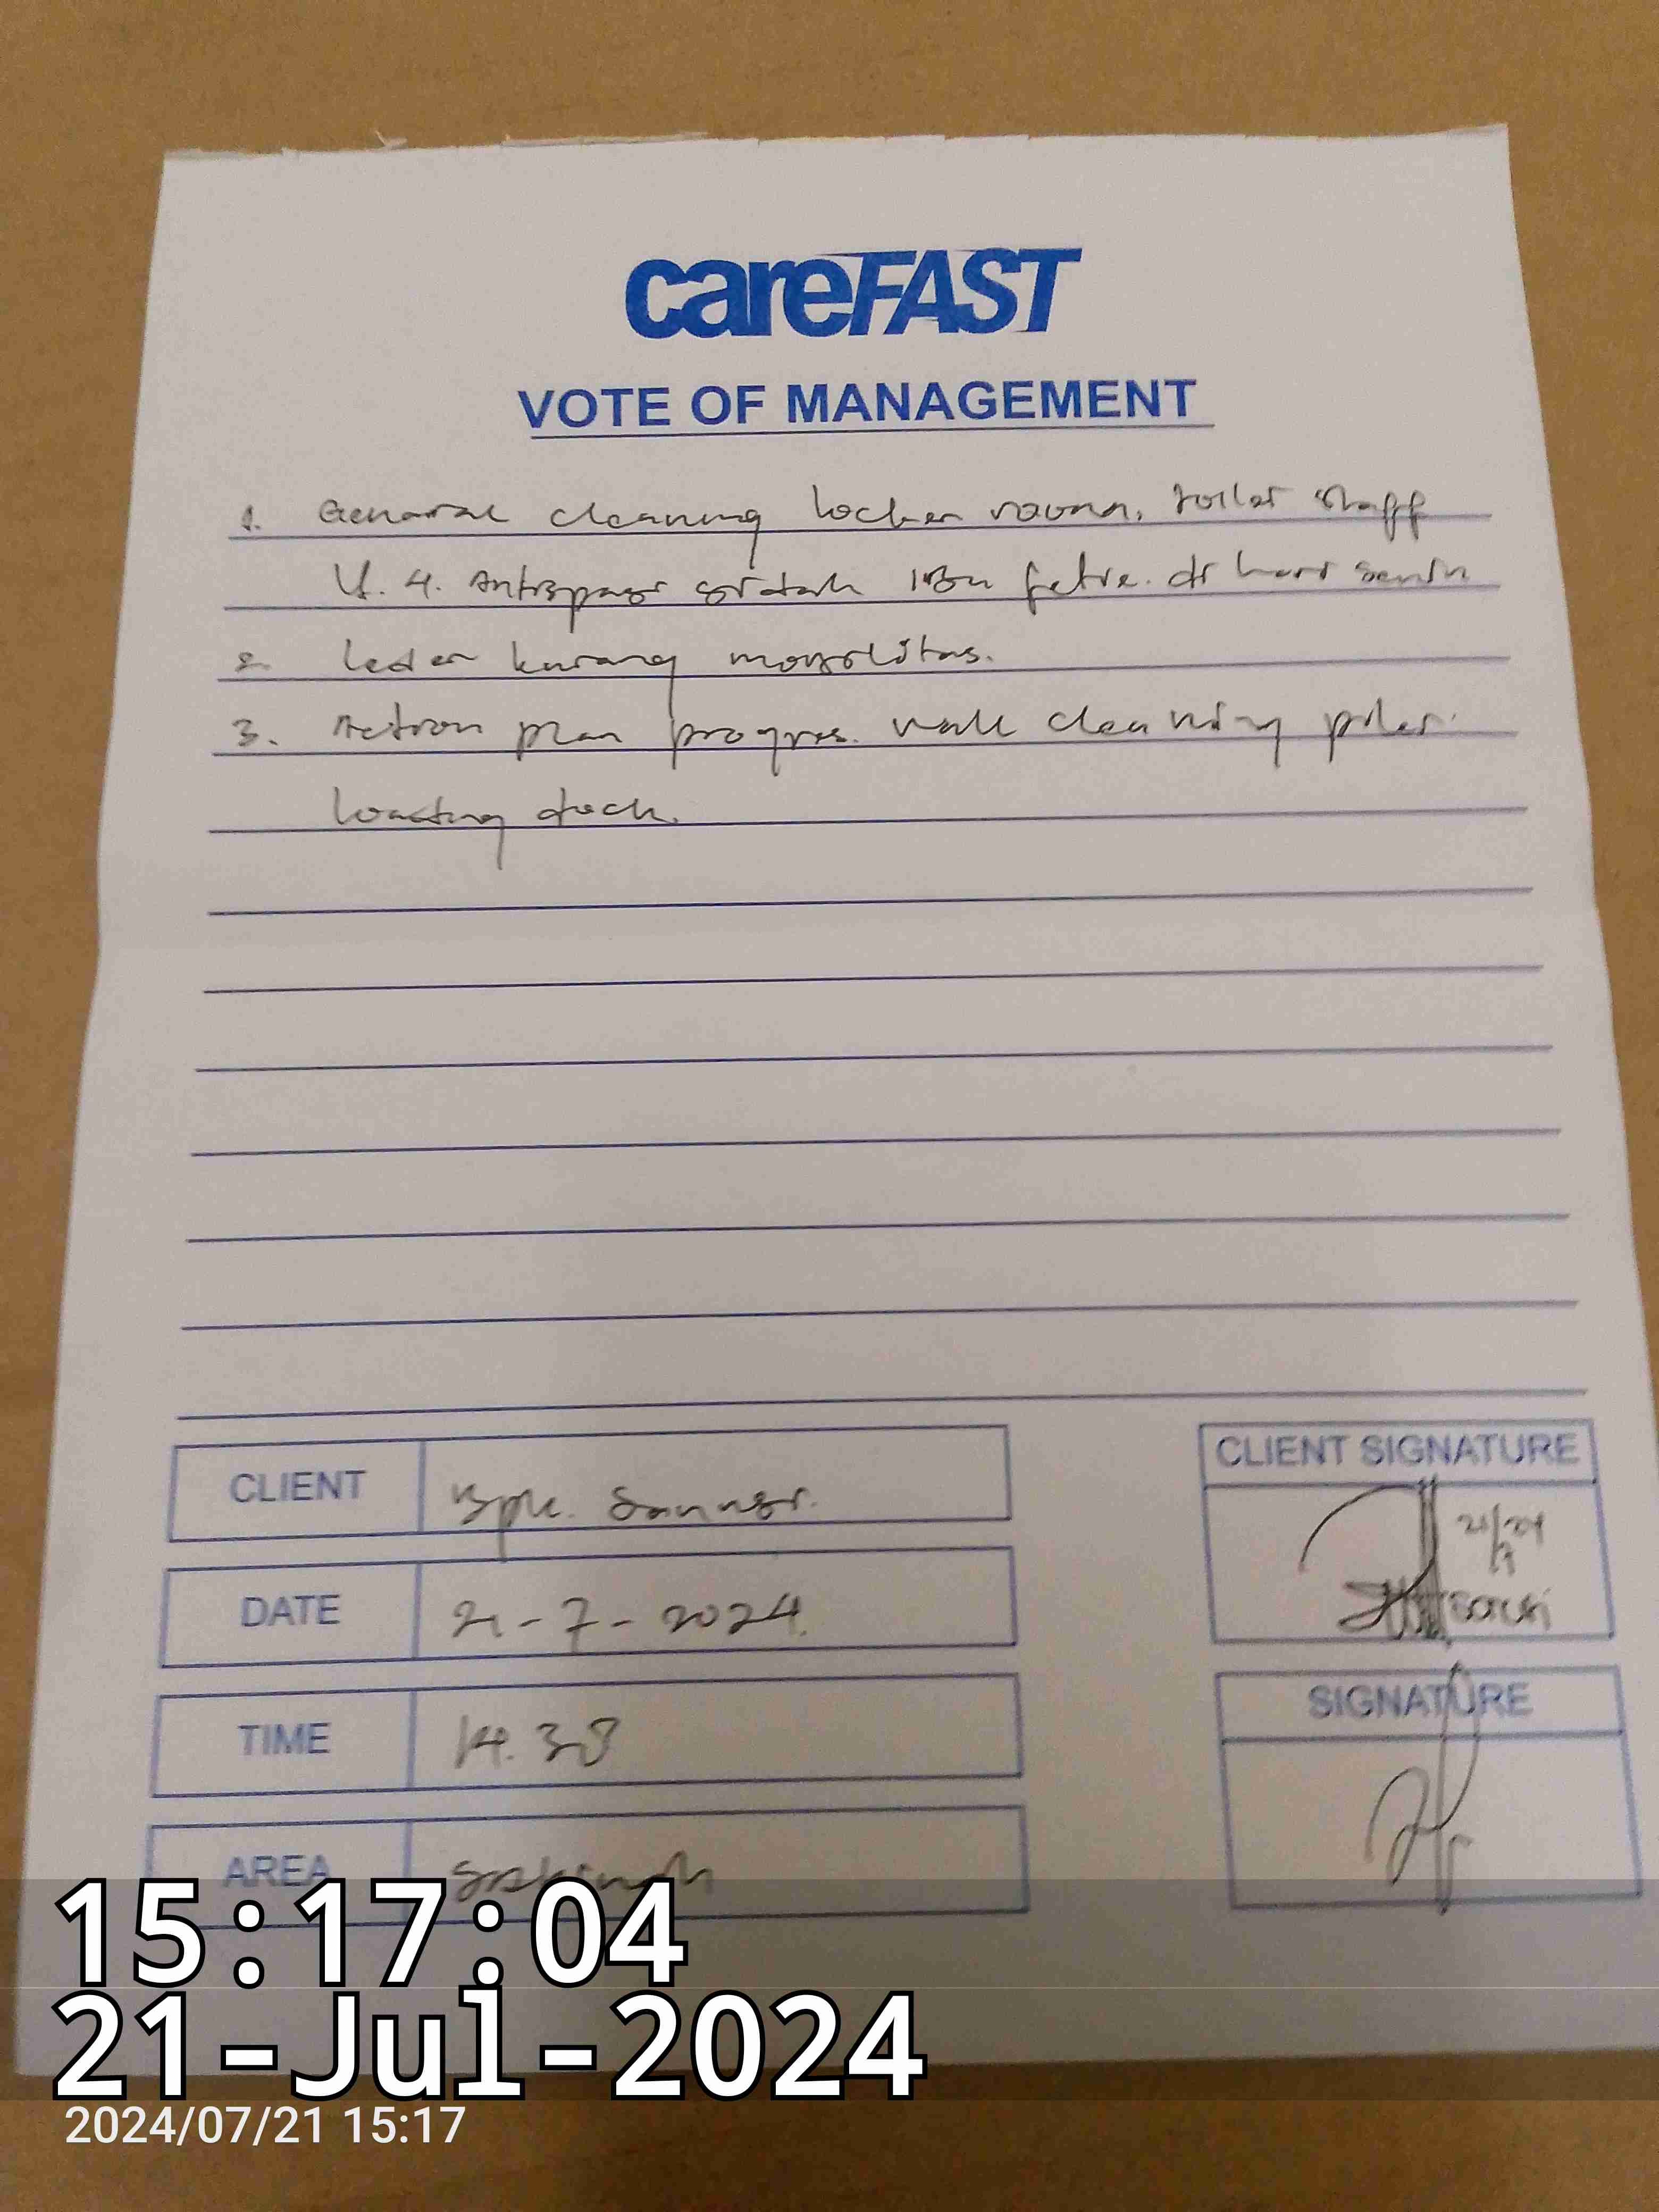 careFAST
VOTE OF MANAGEMENT
1. General cleaning locker room, toilet staff
Lt. 4. Antisipasi sidak Ibu Fetre. di hari senin
2. leder kurang mobilitas.
3. Action plan progres. wall cleaning pilar
loading dock.
CLIENT Bpk. Sanusi.
DATE 21-7-2024
TIME 14.38
AREA
CLIENT SIGNATURE
21/24
7
SIGNATURE
15:17:04
21-Jul-2024
2024/07/21 15:17